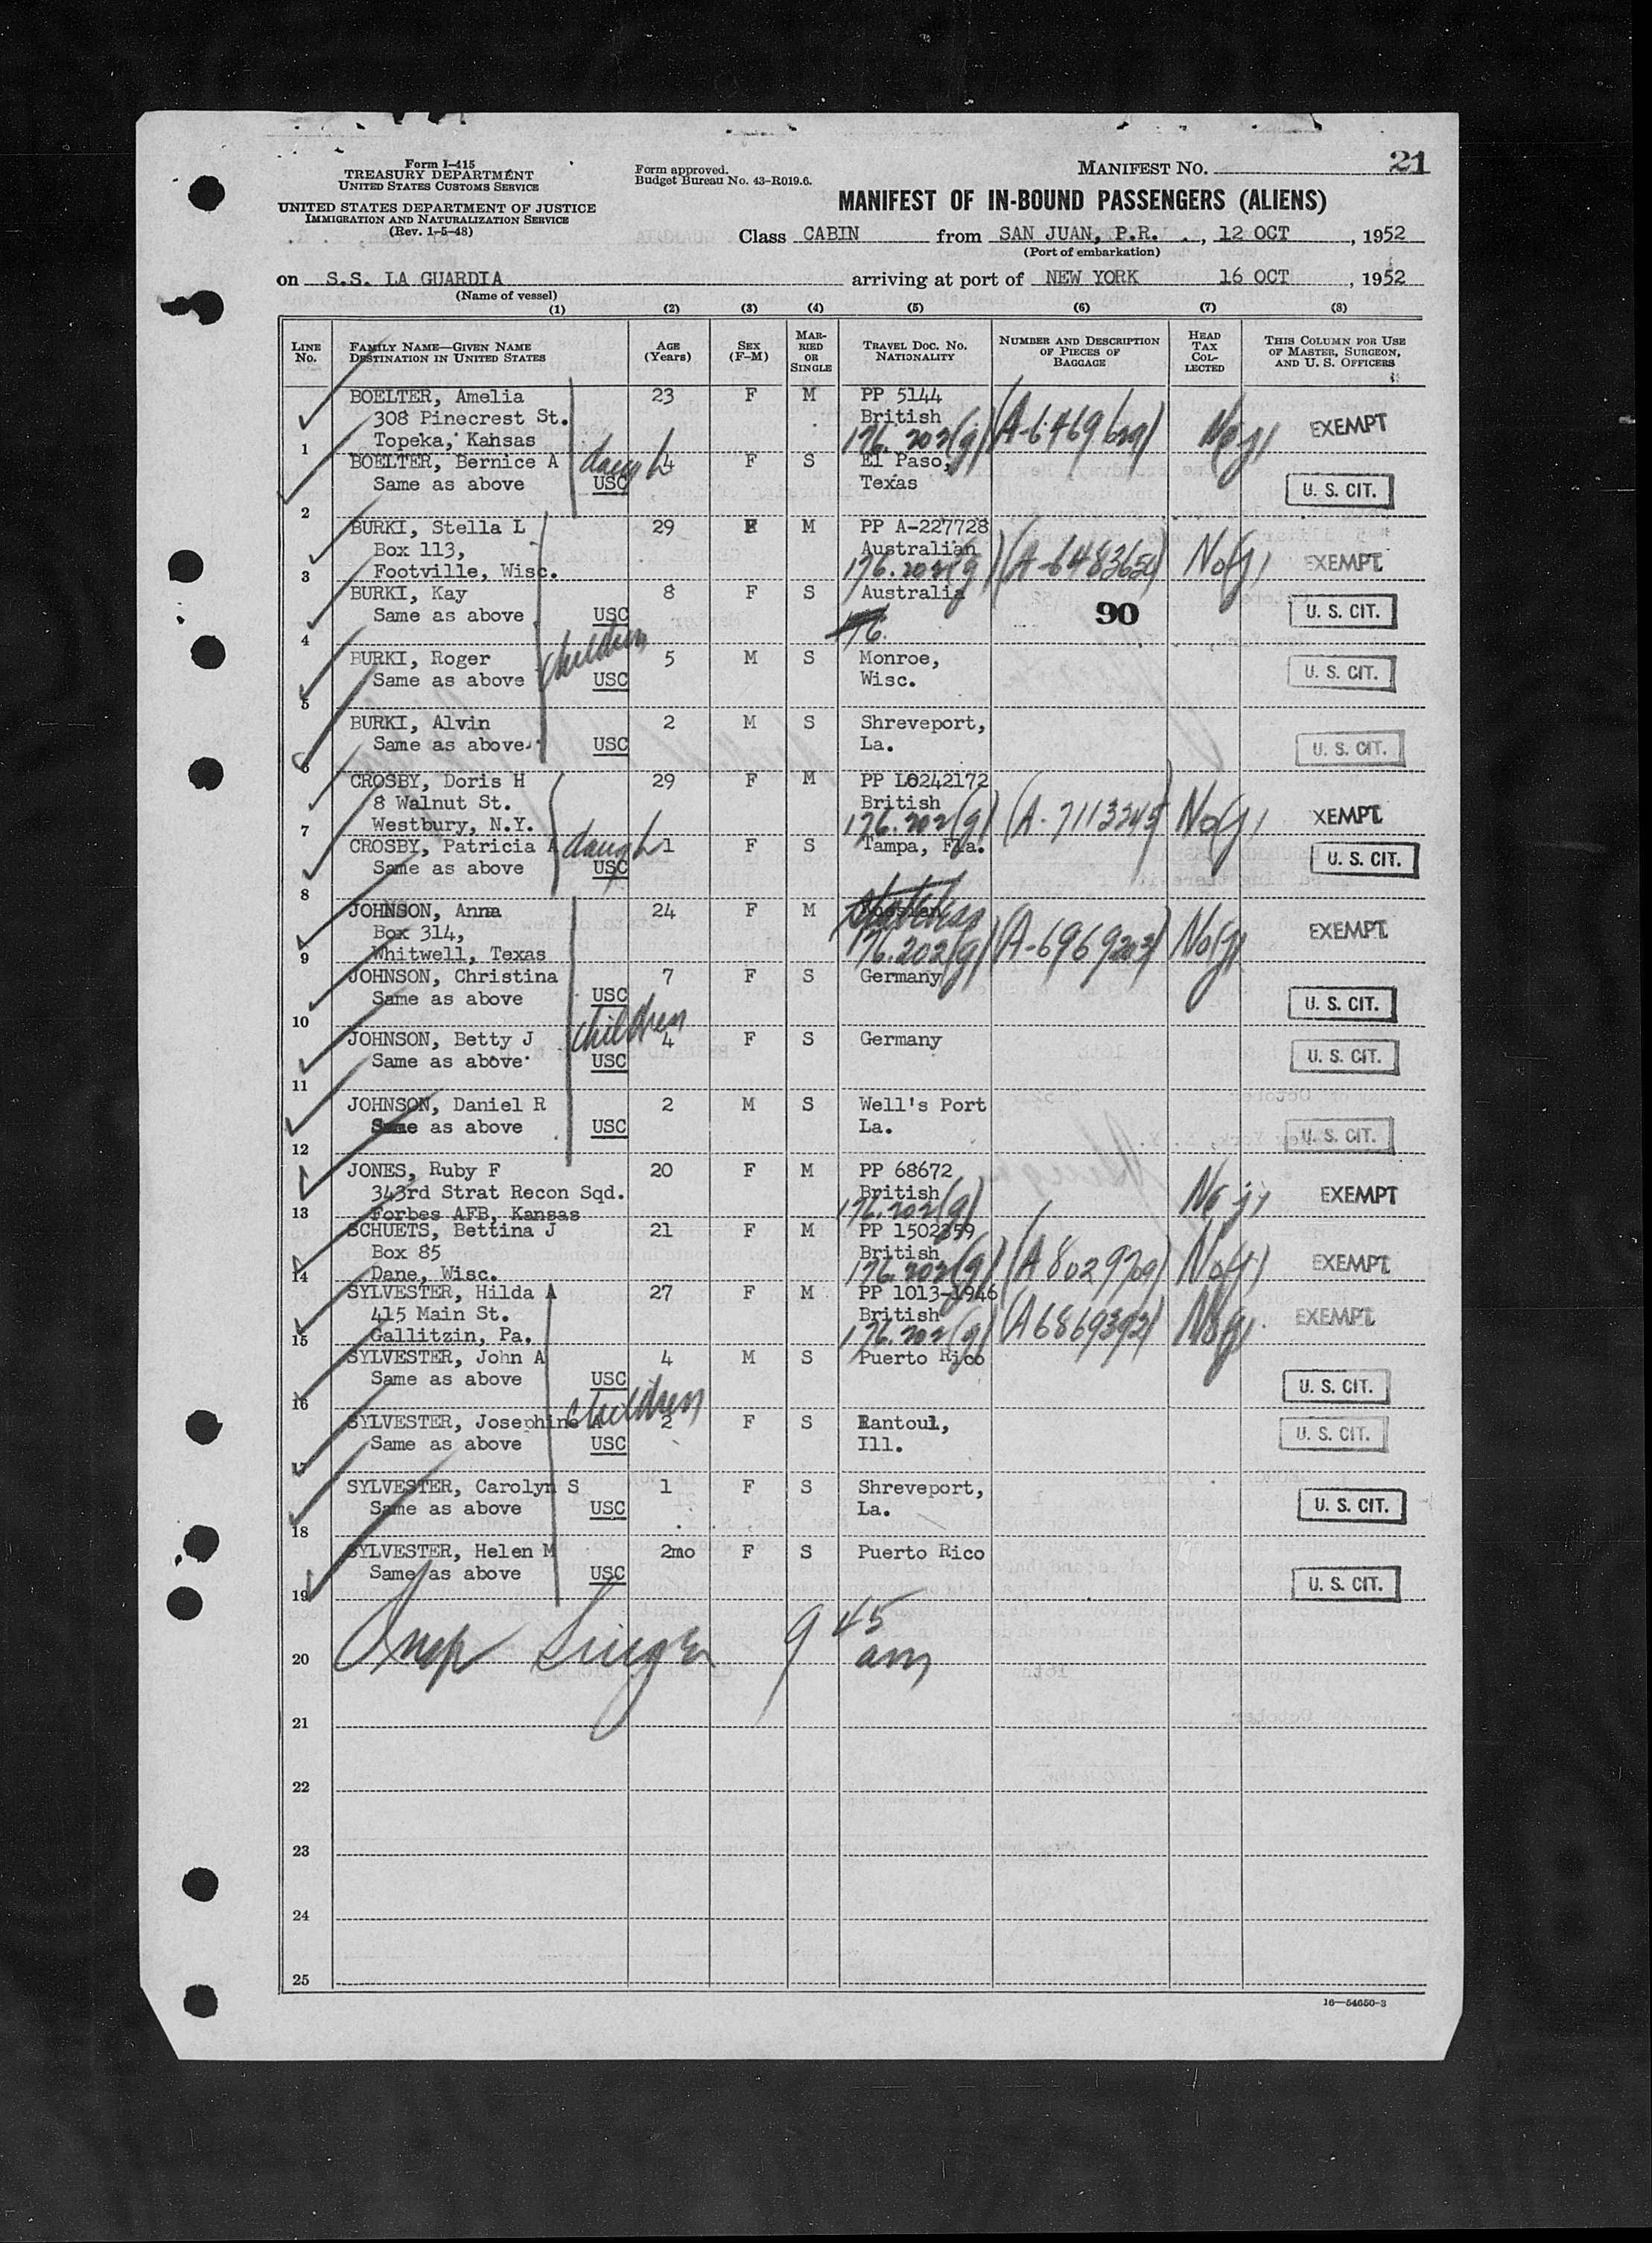 21
Form I-415
TREASURY DEPARTMENT
UNITED STATES CUSTOMS SERVICE
UNITED STATES DEPARTMENT OF JUSTICE
IMMIGRATION AND NATURALIZATION SERVICE
(Rev. 1-5-48)
Form approved.
Budget Bureau No. 43-R019.6.
MANIFEST NO.
MANIFEST OF IN-BOUND PASSENGERS (ALIENS)
Class CABIN from SAN JUAN, P.R., 12 OCT, 1952
(Port of embarkation)
on S.S. LA GUARDIA arriving at port of NEW YORK 16 OCT, 1952
(Name of vessel)
(1) (2) (3) (4) (5) (6) (7) (8)
LINE No. FAMILY NAME—GIVEN NAME DESTINATION IN UNITED STATES AGE (Years) SEX (F-M) MARRIED OR SINGLE TRAVEL DOC. NO. NATIONALITY NUMBER AND DESCRIPTION OF PIECES OF BAGGAGE HEAD TAX COLLECTED THIS COLUMN FOR USE OF MASTER, SURGEON, AND U. S. OFFICERS
BOELTER, Amelia 23 F M PP 5144
308 Pinecrest St. British EXEMPT
1 Topeka, Kansas 176.202(g)
BOELTER, Bernice A daugh 4 F S El Paso,
Same as above USC Texas U. S. CIT.
2
BURKI, Stella L 29 F M PP A-227728
Box 113, Australian
3 Footville, Wisc. 176.202(g) (A-6483650) No(g) EXEMPT
BURKI, Kay 8 F S Australia
Same as above USC 90 U. S. CIT.
4 176.
children
BURKI, Roger 5 M S Monroe,
Same as above USC Wisc. U. S. CIT.
5
BURKI, Alvin 2 M S Shreveport,
Same as above USC La. U. S. CIT.
6
CROSBY, Doris H 29 F M PP L0242172
8 Walnut St. British
7 Westbury, N.Y. 176.202(g) (A-7113245) No(g) XEMPT
CROSBY, Patricia A daugh 1 F S Tampa, Fla.
Same as above USC U. S. CIT.
8
JOHNSON, Anna 24 F M
Box 314, EXEMPT
9 Whitwell, Texas 176.202(g) (A-6969203) No(g)
JOHNSON, Christina 7 F S Germany
Same as above USC U. S. CIT.
10 children
JOHNSON, Betty J 4 F S Germany
Same as above USC U. S. CIT.
11
JOHNSON, Daniel R 2 M S Well's Port
Same as above USC La. U. S. CIT.
12
JONES, Ruby F 20 F M PP 68672
343rd Strat Recon Sqd. British EXEMPT
13 Forbes AFB, Kansas 176.202(g)
SCHUETS, Bettina J 21 F M PP 1502359
Box 85 British
14 Dane, Wisc. 176.202(g) (A8029709) No(g) EXEMPT
SYLVESTER, Hilda A 27 F M PP 1013-1946
415 Main St. British EXEMPT
15 Gallitzin, Pa. 176.202(g) (A6869392) No(g)
SYLVESTER, John A 4 M S Puerto Rico
Same as above USC U. S. CIT.
16 children
SYLVESTER, Josephine A 2 F S Rantoul,
Same as above USC Ill. U. S. CIT.
17
SYLVESTER, Carolyn S 1 F S Shreveport,
Same as above USC La. U. S. CIT.
18
SYLVESTER, Helen M 2mo F S Puerto Rico
Same as above USC U. S. CIT.
19
Insp 9 45
20 am
21
22
23
24
25
16—54650-3